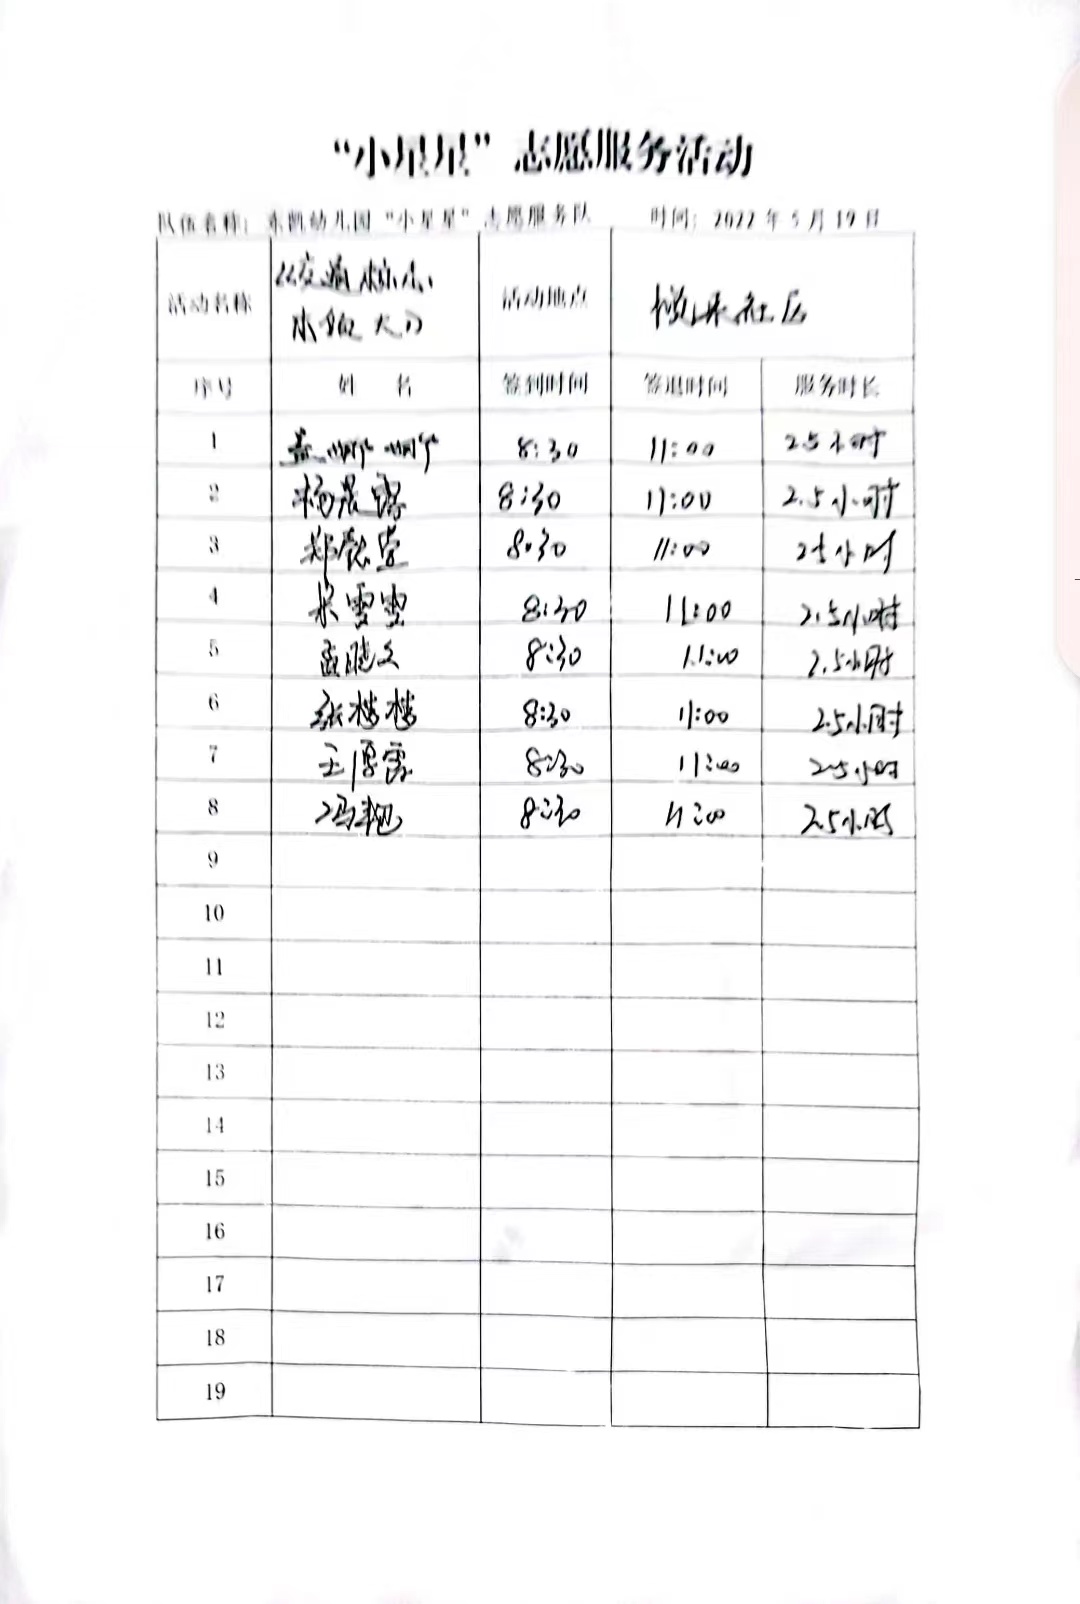 “小星星”志愿服务活动
队伍名称：东凯幼儿园“小星星”志愿服务队 时间：2022年5月19日
活动名称 交通标志 活动地点 悦来社区
序号 姓 名 签到时间 签退时间 服务时长
1 8:30 11:00 2.5小时
2 杨晨露 8:30 11:00 2.5小时
3 郑懿萱 8:30 11:00 2.5小时
4 雯雯 8:30 11:00 2.5小时
5 孟晓文 8:30 11:00 2.5小时
6 张楼楼 8:30 11:00 2.5小时
7 王厚霖 8:30 11:00 2.5小时
8 冯艳 8:30 11:00 2.5小时
9
10
11
12
13
14
15
16
17
18
19